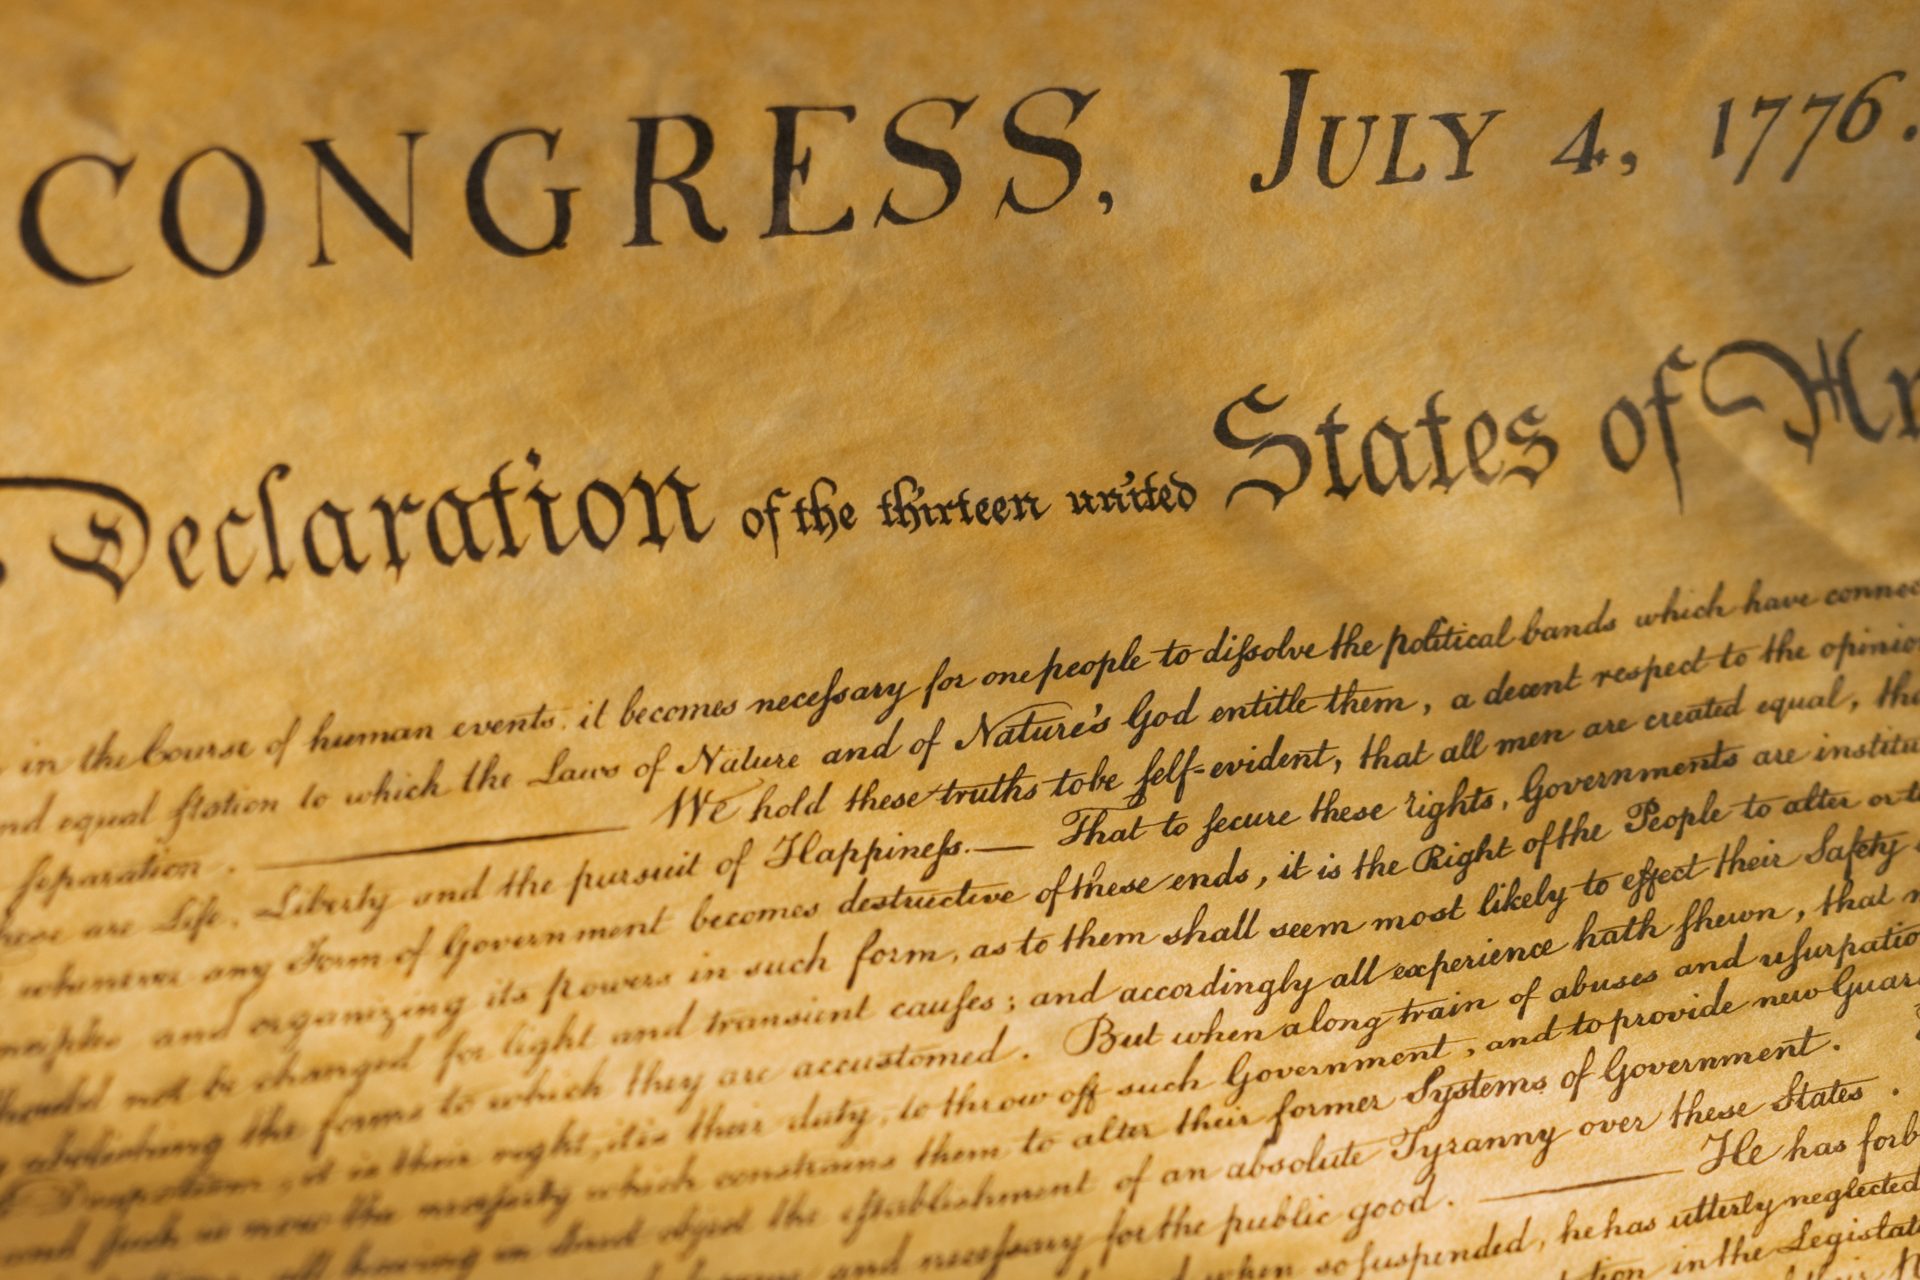 CONGRESS, JULY 4, 1776.
Declaration of the thirteen united States of Am
in the Course of human events, it becomes necessary for one people to dissolve the political bands which have connec
nd equal station to which the Laws of Nature and of Nature's God entitle them, a decent respect to the opinio
separation. — We hold these truths to be self-evident, that all men are created equal, tha
these are Life, Liberty and the pursuit of Happiness. — That to secure these rights, Governments are institu
whenever any Form of Government becomes destructive of these ends, it is the Right of the People to alter or to
nciples and organizing its powers in such form, as to them shall seem most likely to effect their Safety
should not be changed for light and transient causes; and accordingly all experience hath shewn, that m
abolishing the forms to which they are accustomed. But when a long train of abuses and usurpatio
Despotism, it is their right, it is their duty, to throw off such Government, and to provide new Guar
and such is now the necessity which constrains them to alter their former Systems of Government.
all having in direct object the establishment of an absolute Tyranny over these States.
and necessary for the public good. — He has forb
when so suspended, he has utterly neglected
in the Legislat